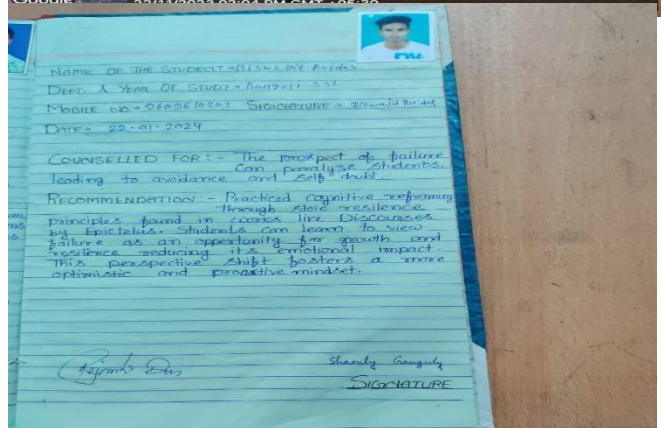 NAME OF THE STUDENT = Biswajit Ruidas
DEPT. & YEAR OF STUDY =
MOBILE NO = SIGNATURE = Biswajit Ruidas
DATE = 22-01-2024
COUNSELLED FOR :- The prospect of failure
can paralyze students,
leading to avoidance and self doubt.
RECOMMENDATION :- Practiced cognitive reframing
through stoic resilence
principles found in works like Discourses
by Epictetus. Students can learn to view
failure as an opportunity for growth and
resilience reducing its emotional impact.
This perspective shift fosters a more
optimistic and proactive mindset.
Shaonly Ganguly
SIGNATURE